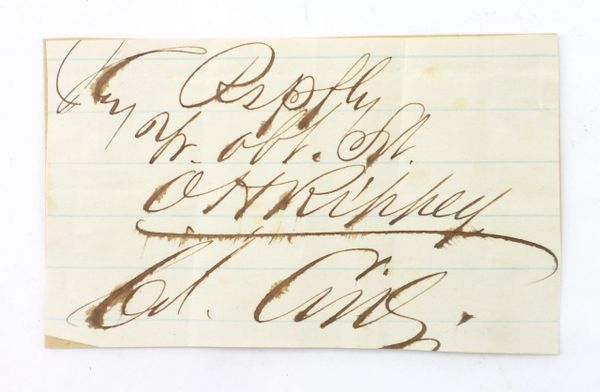 Vry Rspfly
Yr. obt. St.
O H Rippey
Col. Cmdg.